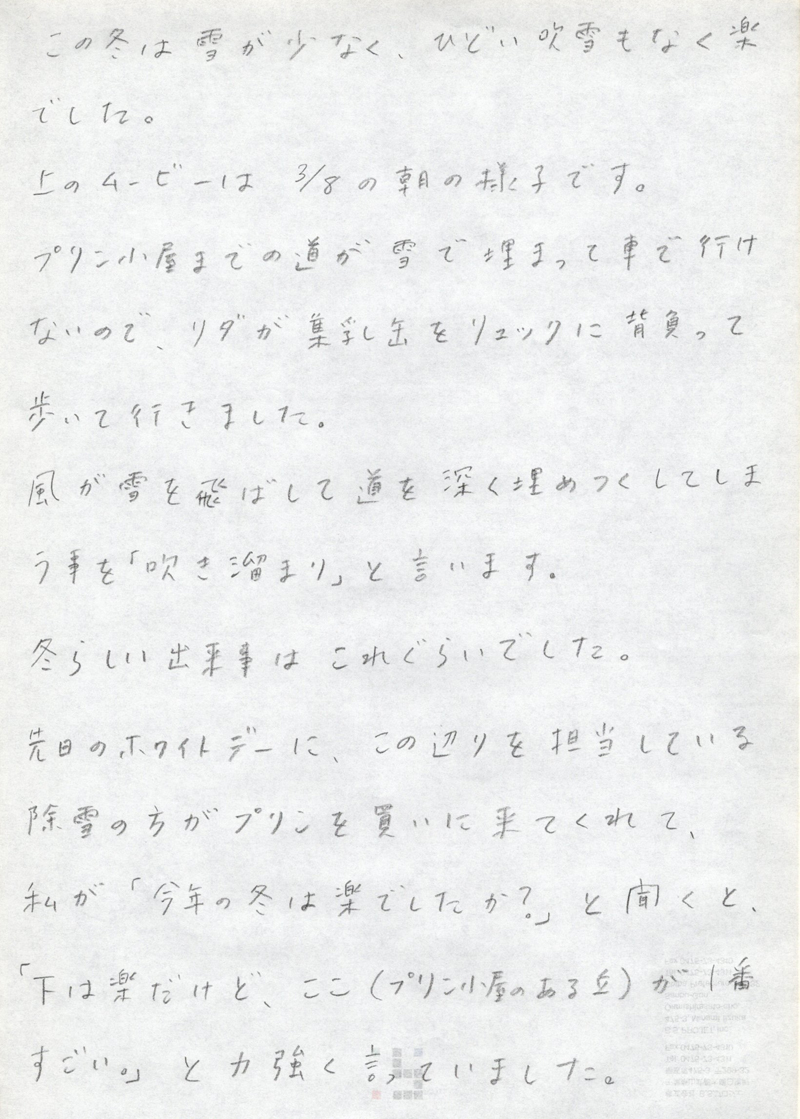 この冬は雪が少なく、ひどい吹雪もなく楽
でした。
上のムービーは 3/8の朝の様子です。
プリン小屋までの道が雪で埋まって車で行け
ないので、リダが集乳缶をリュックに背負って
歩いて行きました。
風が雪を飛ばして道を深く埋めつくしてしま
う事を「吹き溜まり」と言います。
冬らしい出来事はこれぐらいでした。
先日のホワイトデーに、この辺りを担当している
除雪の方がプリンを買いに来てくれて、
私が「今年の冬は楽でしたか?」と聞くと、
「下は楽だけど、ここ(プリン小屋のある丘)が1番
すごい。」と力強く言っていました。